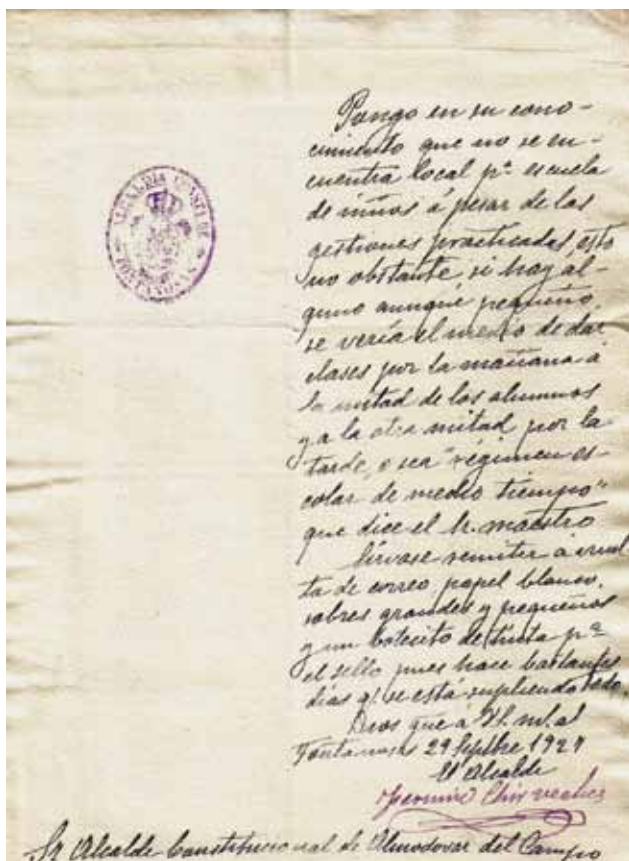 ALCALDIA CONSTL DE
FONTANOSAS
Pongo en su cono-
cimiento que no se en-
cuentra local pª escuela
de niños á pesar de las
gestiones practicadas, esto
no obstante, si hay al-
guno aunque pequeño,
se vería el medio de dar
clases por la mañana á
la mitad de los alumnos
y a la otra mitad por la
tarde, o sea "régimen es-
colar de medio tiempo"
que dice el Sr. maestro
Sírvase remiter á vuel-
ta de correo papel blanco,
sobres grandes y pequeños
y un botecito de tinta pª
el sello pues hace bastantes
días q. se está supliendo todo.
Dios gue á V. m. a.
Fontanosas 29 Septbre 192
El Alcalde
Sr Alcalde Constitucional de Almodovar del Campo